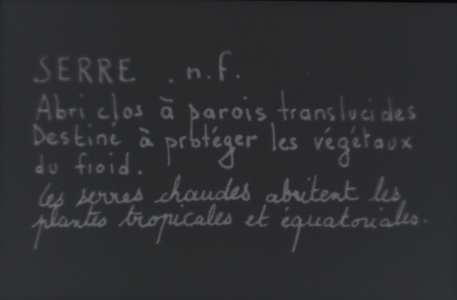 SERRE . n.f.
Abri clos à parois translucides
Destiné à protéger les végétaux
du froid.
les serres chaudes abritent les
plantes tropicales et équatoriales.